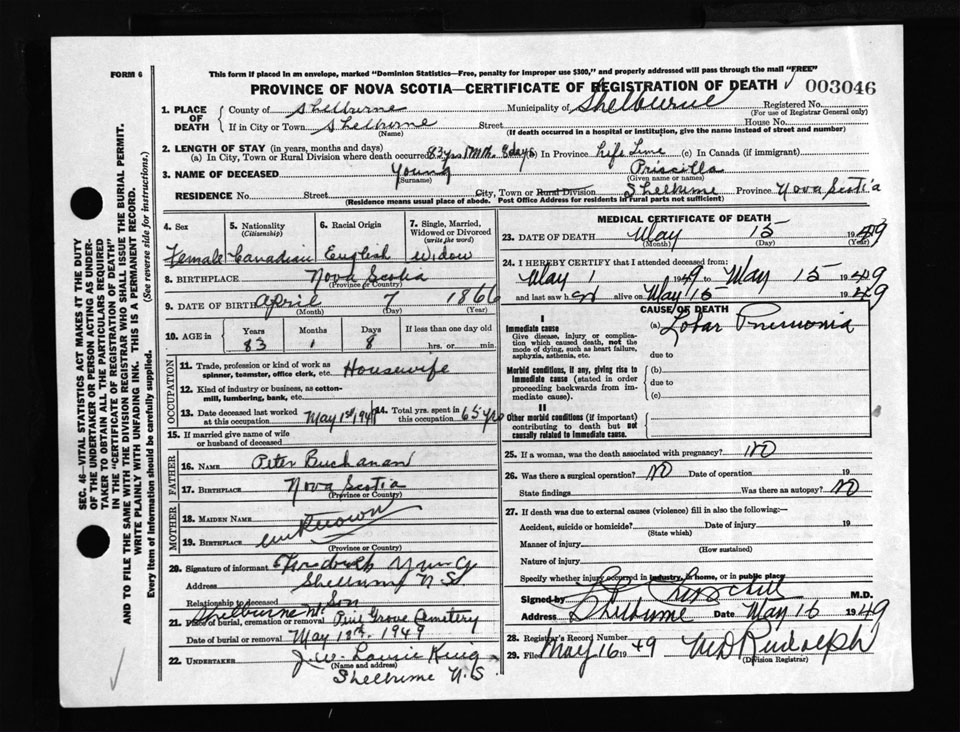 FORM 6
This form if placed in an envelope, marked "Dominion Statistics—Free, penalty for improper use $300," and properly addressed will pass through the mail "FREE"
PROVINCE OF NOVA SCOTIA—CERTIFICATE OF REGISTRATION OF DEATH
003046
1. PLACE OF DEATH
County of Shelburne Municipality of Shelburne Registered No.
(For use of Registrar General only)
If in City or Town Shelburne Street House No.
(Name) (If death occurred in a hospital or institution, give the name instead of street and number)
2. LENGTH OF STAY (in years, months and days)
(a) In City, Town or Rural Division where death occurred 83 yrs 1 Mth. 8 days (b) In Province Life Time (c) In Canada (if immigrant)
3. NAME OF DECEASED Young Priscilla
(Surname) (Given name or names)
RESIDENCE No. Street City, Town or Rural Division Shelburne Province Nova Scotia
(Residence means usual place of abode. Post Office Address for residents in rural parts not sufficient)
4. Sex
Female
5. Nationality
(Citizenship)
Canadian
6. Racial Origin
English
7. Single, Married, Widowed or Divorced
(write the word)
Widow
8. BIRTHPLACE Nova Scotia
(Province or Country)
9. DATE OF BIRTH April 7 1866
(Month) (Day) (Year)
10. AGE in
Years Months Days If less than one day old
83 1 8 hrs. or min.
OCCUPATION
11. Trade, profession or kind of work as spinner, teamster, office clerk, etc. Housewife
12. Kind of industry or business, as cotton-mill, lumbering, bank, etc.
13. Date deceased last worked at this occupation May 1st 194
14. Total yrs. spent in this occupation 65 yrs
15. If married give name of wife or husband of deceased
FATHER
16. NAME Peter Buchanan
17. BIRTHPLACE Nova Scotia
(Province or County)
MOTHER
18. MAIDEN NAME
19. BIRTHPLACE unknown
(Province or Country)
20. Signature of informant Young
Address Shelburne N.S.
Relationship to deceased Son
Shelburne N.S.
21. Place of burial, cremation or removal Pine Grove Cemetery
Date of burial or removal May 18th 1949
22. UNDERTAKER J. W. Laurie King
(Name and address)
Shelburne N.S.
MEDICAL CERTIFICATE OF DEATH
23. DATE OF DEATH May 15 1949
(Month) (Day) (Year)
24. I HEREBY CERTIFY that I attended deceased from:
May 1 1949 to May 15 1949
and last saw her alive on May 15 1949
CAUSE OF DEATH
I
Immediate cause
Give disease, injury or complication which caused death, not the mode of dying, such as heart failure, asphyxia, asthenia, etc.
(a) Lobar Pnemonia
due to
Morbid conditions, if any, giving rise to immediate cause (stated in order proceeding backwards from immediate cause).
(b)
due to
(c)
II
Other morbid conditions (if important) contributing to death but not causally related to immediate cause.
25. If a woman, was the death associated with pregnancy? NO
26. Was there a surgical operation? NO Date of operation 19
State findings Was there an autopsy? NO
27. If death was due to external causes (violence) fill in also the following:—
Accident, suicide or homicide? Date of injury 19
(State which)
Manner of injury
(How sustained)
Nature of injury
Specify whether injury occurred in industry, in home, or in public place
Signed by M.D.
Address Shelburne Date May 16 1949
28. Registrar's Record Number
29. Filed May 16 1949 W D Rudolph
(Division Registrar)
SEC. 46—VITAL STATISTICS ACT MAKES IT THE DUTY OF THE UNDERTAKER OR PERSON ACTING AS UNDERTAKER TO OBTAIN ALL THE PARTICULARS REQUIRED IN THE "CERTIFICATE OF REGISTRATION OF DEATH"
AND TO FILE THE SAME WITH THE DIVISION REGISTRAR WHO SHALL ISSUE THE BURIAL PERMIT.
WRITE PLAINLY WITH UNFADING INK. THIS IS A PERMANENT RECORD.
Every item of Information should be carefully supplied. (See reverse side for instructions.)